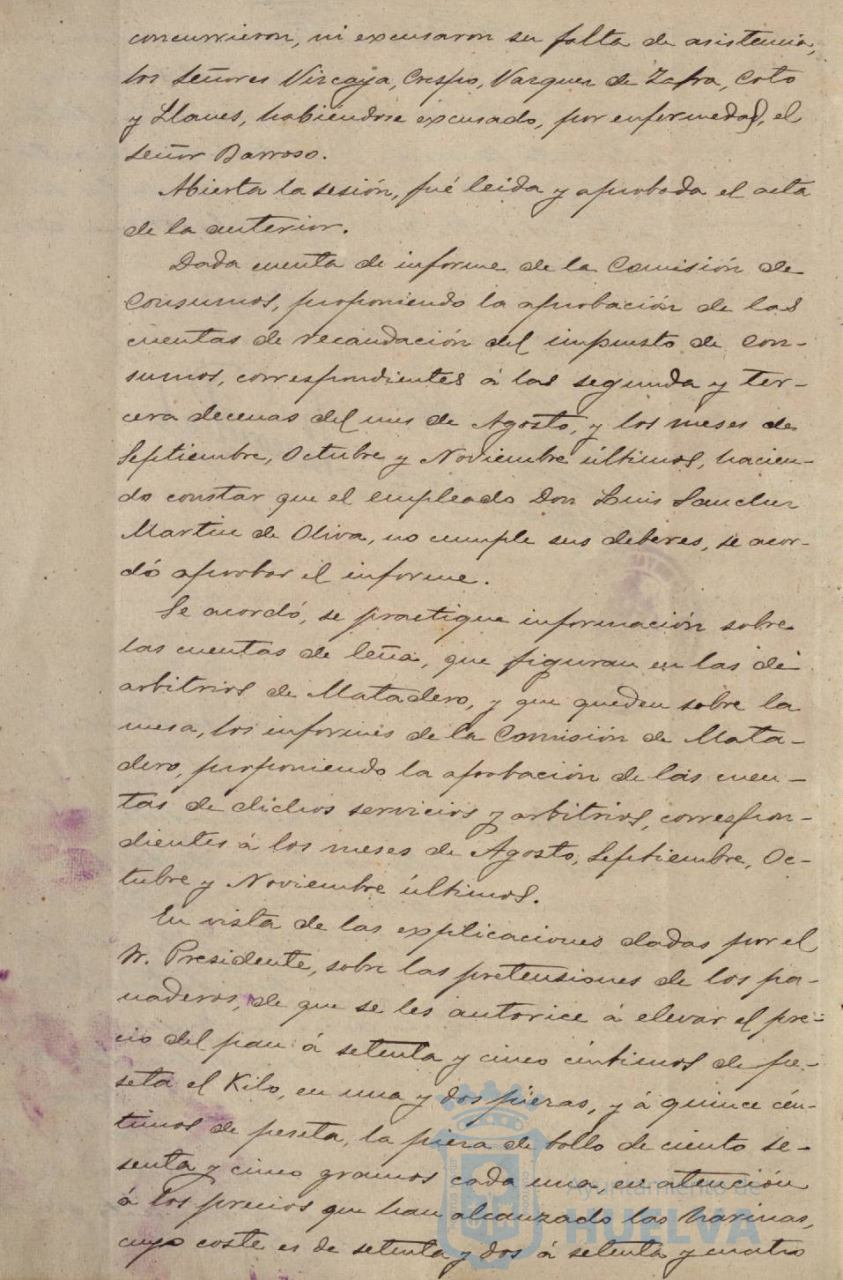 concurrieron, ni excusaron su falta de asistencia,
los señores Vizcaya, Crespo, Vazquez de Zafra, Coto
y Llanes, habiéndose excusado, por enfermedad, el
señor Barroso.
Abierta la sesión, fué leida y aprobada el acta
de la anterior.
Dada cuenta de informe de la Comisión de
Consumos, proponiendo la aprobación de las
cuentas de recaudación del impuesto de Con-
sumos, correspondientes á las segunda y ter-
cera decenas del mes de Agosto, y los meses de
Septiembre, Octubre y Noviembre últimos, hacien-
do constar que el empleado Don Luis Sanchez
Martin de Oliva, no cumple sus deberes, se acor-
dó aprobar el informe.
Se acordó, se practique información sobre
las cuentas de leña, que figuran en las de
arbitrios de Matadero, y que queden sobre la
mesa, los informes de la Comisión de Mata-
dero, proponiendo la aprobación de las cuen-
tas de dichos servicios y arbitrios, correspon-
dientes á los meses de Agosto, Septiembre, Oc-
tubre y Noviembre últimos.
En vista de las explicaciones dadas por el
Sr. Presidente, sobre las pretensiones de los pa-
naderos, de que se les autorice á elevar el pre-
cio del pan á setenta y cinco céntimos de pe-
seta el Kilo, en una y dos piezas, y á quince cén-
timos de peseta, la pieza de bollo de ciento se-
senta y cinco gramos cada una, en atención
á los precios que han alcanzado las harinas,
cuyo coste es de setenta y dos á setenta y cuatro
Ayuntamiento de
HUELVA